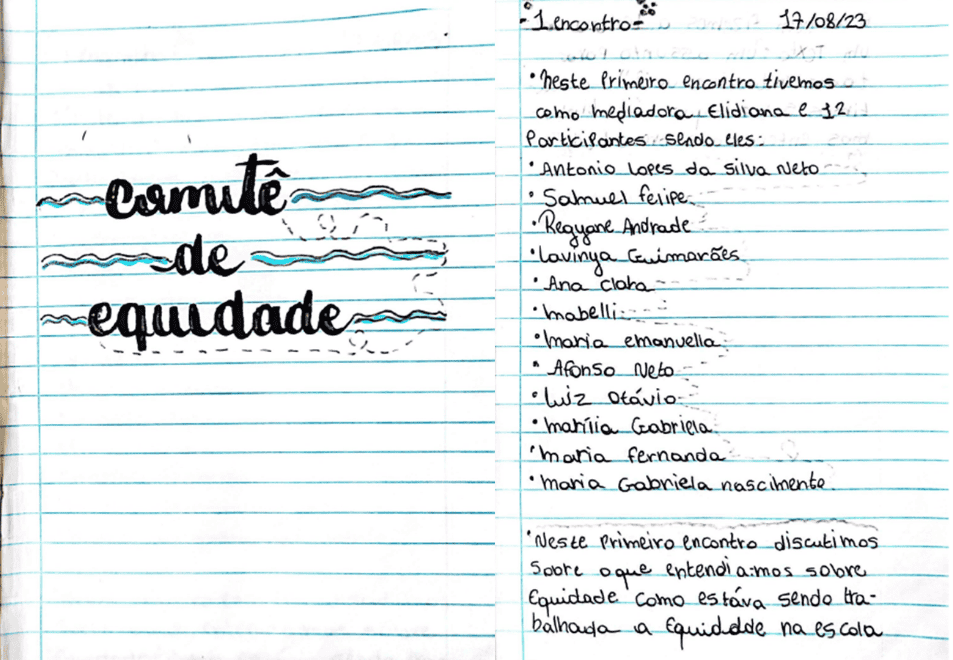 comitê
de
equidade
- 1. encontro - 17/08/23
• Neste Primeiro encontro tivemos
como mediadora Elidiana e 12
Participantes sendo eles:
• Antonio Lopes da Silva Neto
• Samuel felipe
• Regyane Andrade
• Lavinya Guimarães
• Ana clara
• Mabelli
• maria emanuella
• Afonso Neto
• Luiz Otávio
• Marília Gabriela
• maria fernanda
• maria Gabriela nascimento
• Neste Primeiro encontro discutimos
Sobre o que entendiamos sobre
Equidade como estáva sendo tra-
balhada a Equidade na escola